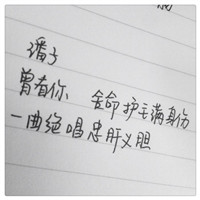 潘子
曾有你 舍命护主满身伤
一曲绝唱忠肝义胆